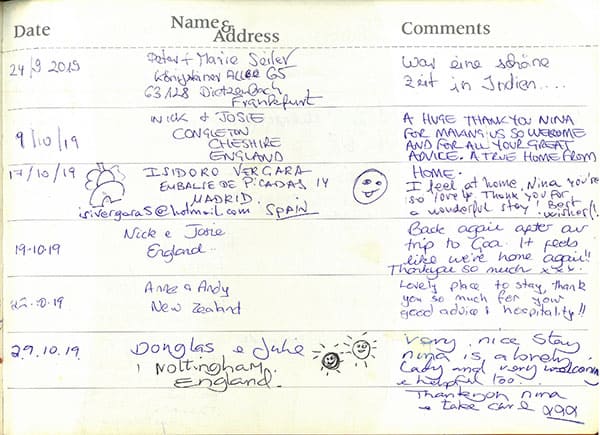 Date Name & Address Comments
24/9 2019
Peter + Marie Seiler
Königsteiner Allee 65
63128 Dietzenbach
Frankfurt
War eine schöne
Zeit in Indien....
9/10/19
NICK & JOSIE
CONGLETON
CHESHIRE
ENGLAND
A HUGE THANK YOU NINA
FOR MAKING US SO WELCOME
AND FOR ALL YOUR GREAT
ADVICE. A TRUE HOME FROM
HOME.
17/10/19
ISIDORO VERGARA
EMBALSE DE PICADAS 14
MADRID.
isivergara5@hotmail.com SPAIN
I feel at home. Nina you're
so lovely. Thank you for
a wonderful stay! Best
wishes!!
19.10.19
Nick & Josie
England..
Back again after our
trip to Goa. It feels
like we're home again!!
Thankyou so much xxx.
.10.19
Anne & Andy
New Zealand
Lovely place to stay, thank
you so much for your
good advice & hospitality!!
29.10.19.
Douglas & Julie
Nottingham,
England.
Very nice stay
nina is a lovely
Lady and very welcoming
& helpful too.
Thankyou nina
take care xxx